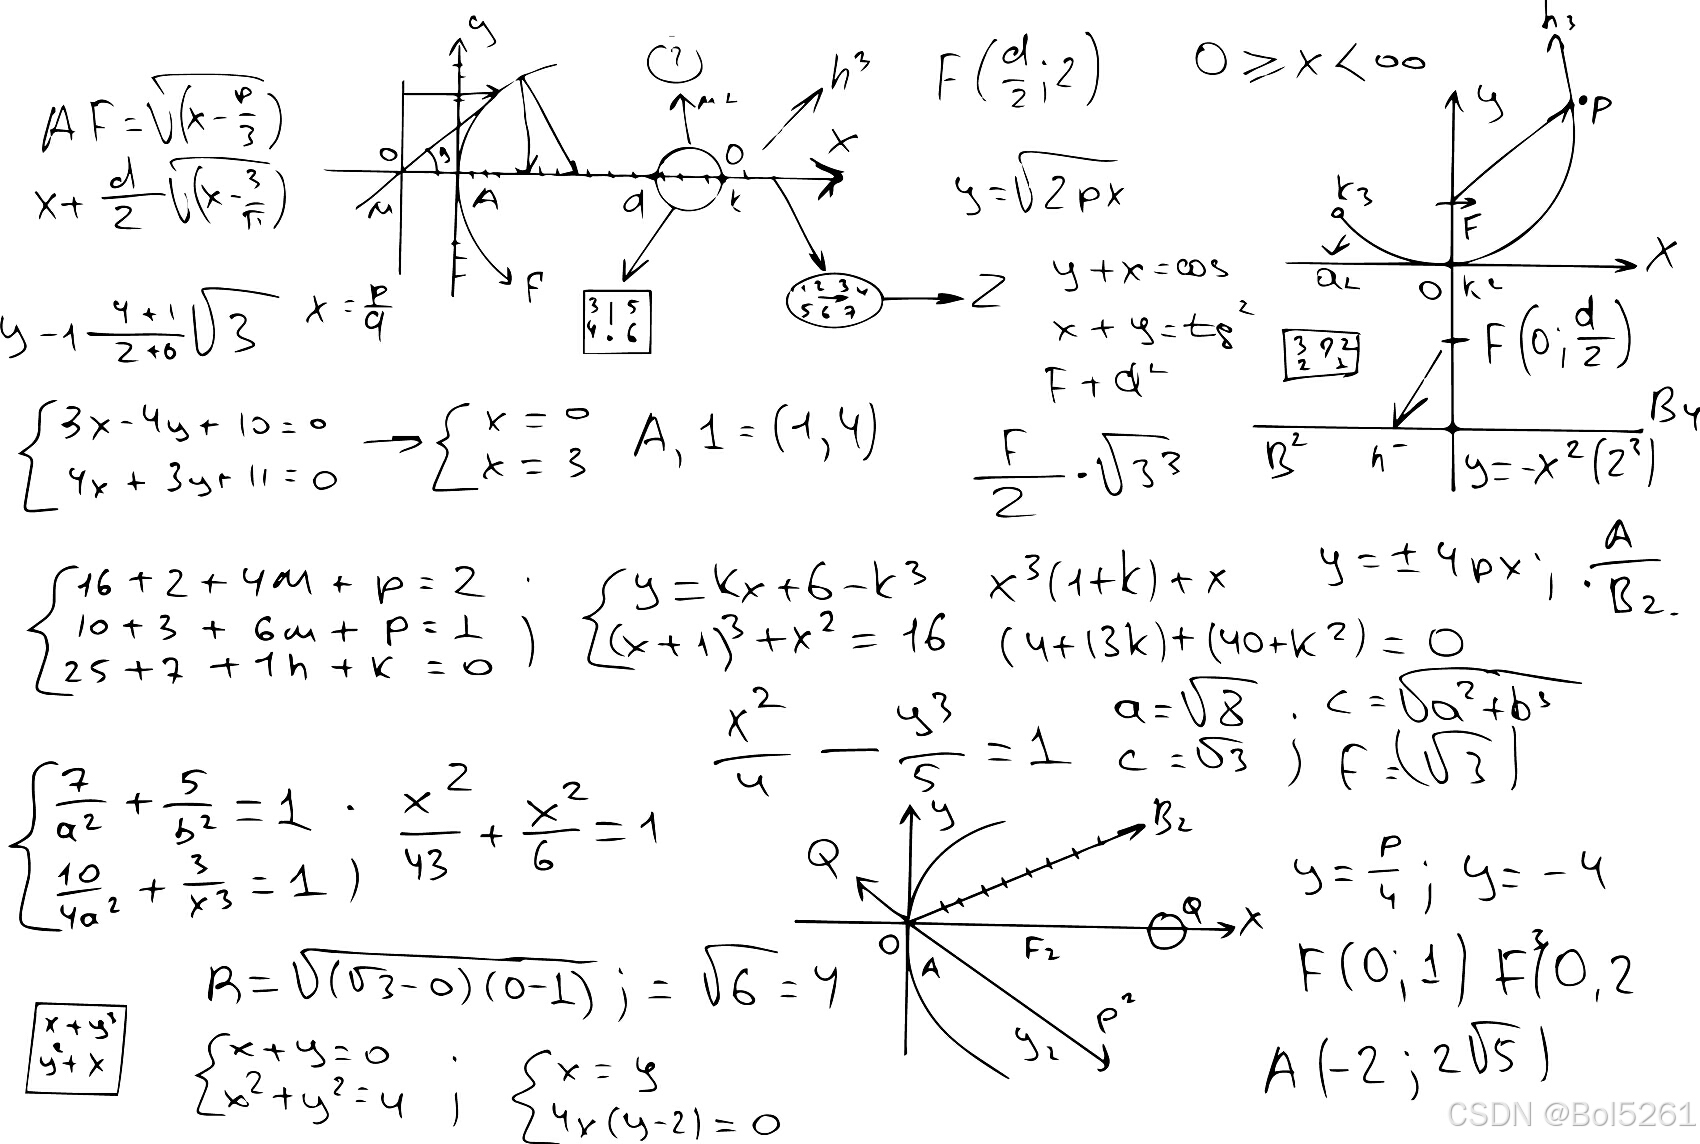 y
(?)
h³
F(d/2;2)
0 ≥ x < ∞
h₃
AF=√(x-p/3)
O
A
d
O
k
x
y
•P
x+ d/2 √(x-3/π)
M
y=√2px
k₃
F
F
a₂
O
k²
X
y-1 4+1/2+0 √3
x=p/q
3 | 5
4 . 6
1 2 3 4
5 6 7
Z
y+x=cos
x+y=tg²
F+d²
3 ? 2
2 1
F(0;d/2)
{3x-4y+10=0
4x+3y+11=0
→
{x=0
x=3
A,1=(1,4)
F/2·√3³
B²
h⁻
y=-x²(2³)
B₄
{16+2+4m+p=2
10+3+6m+p=1
25+7+1h+k=0 )
{y=kx+6-k³
(x+1)³+x²=16
x³(1+k)+x
(4+13k)+(40+k²)=0
y=±4px; ·A/B₂.
x²/4 - y³/5 =1
a=√8 ; c=√a²+b³
c=√3 ; F=(√3)
{7/a²+5/b²=1 ·
10/4a²+3/x³=1 )
x²/43+x²/6=1
y
B₂
Q
O
A
F₂
Q
X
P²
y₂
y=p/4; y=-4
F(0;1) F³0,2
A(-2;2√5)
R=√(√3-0)(0-1) ; =√6=4
x+y³
y²+x
{x+y=0
x²+y²=4 ;
{x=y
4x(y-2)=0
CSDN @Bol5261